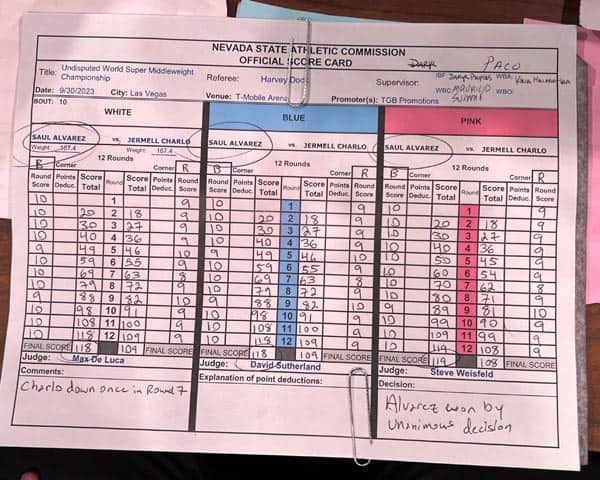 NEVADA STATE ATHLETIC COMMISSION
OFFICIAL SCORE CARD
PACO
Title: Undisputed World Super Middleweight Championship Referee: Harvey Doc Supervisor: IBF WBA:
WBC: MAURICIO WBO:
Date: 9/30/2023 City: Las Vegas Venue: T-Mobile Arena Promoter(s): TGB Promotions
BOUT: 10
WHITE BLUE PINK
SAUL ALVAREZ vs. JERMELL CHARLO SAUL ALVAREZ vs. JERMELL CHARLO SAUL ALVAREZ vs. JERMELL CHARLO
Weight: 167.4 Weight: 167.4
12 Rounds 12 Rounds 12 Rounds
B Corner Corner R B Corner R B Corner R
Round Score Points Deduc. Score Total Round Score Total Points Deduc. Round Score Round Score Points Deduc. Score Total Round Score Total Points Deduc. Round Score Round Score Points Deduc. Score Total Round Score Total Points Deduc. Round Score
10 1 9 10 1 9 10 1 9
10 20 2 18 9 10 20 2 18 9 10 20 2 18 9
10 30 3 27 9 10 30 3 27 9 10 30 3 27 9
10 40 4 36 9 10 40 4 36 9 10 40 4 36 9
9 49 5 46 10 9 49 5 46 10 10 50 5 45 9
10 59 6 55 9 10 59 6 55 9 10 60 6 54 9
10 69 7 63 8 10 69 7 63 8 10 70 7 62 8
10 79 8 72 9 10 79 8 72 9 10 80 8 71 9
9 88 9 82 10 9 88 9 82 10 9 89 9 81 10
10 98 10 91 9 10 98 10 91 9 10 99 10 90 9
10 108 11 100 9 10 108 11 100 9 10 109 11 99 9
10 118 12 109 9 10 118 12 109 9 10 119 12 108 9
FINAL SCORE 118 109 FINAL SCORE FINAL SCORE 118 109 FINAL SCORE FINAL SCORE 119 108 FINAL SCORE
Judge: Max De Luca Judge: David Sutherland Judge: Steve Weisfeld
Comments: Explanation of point deductions: Decision:
Charlo down once in Round 7
Alvarez won by
unanimous decision